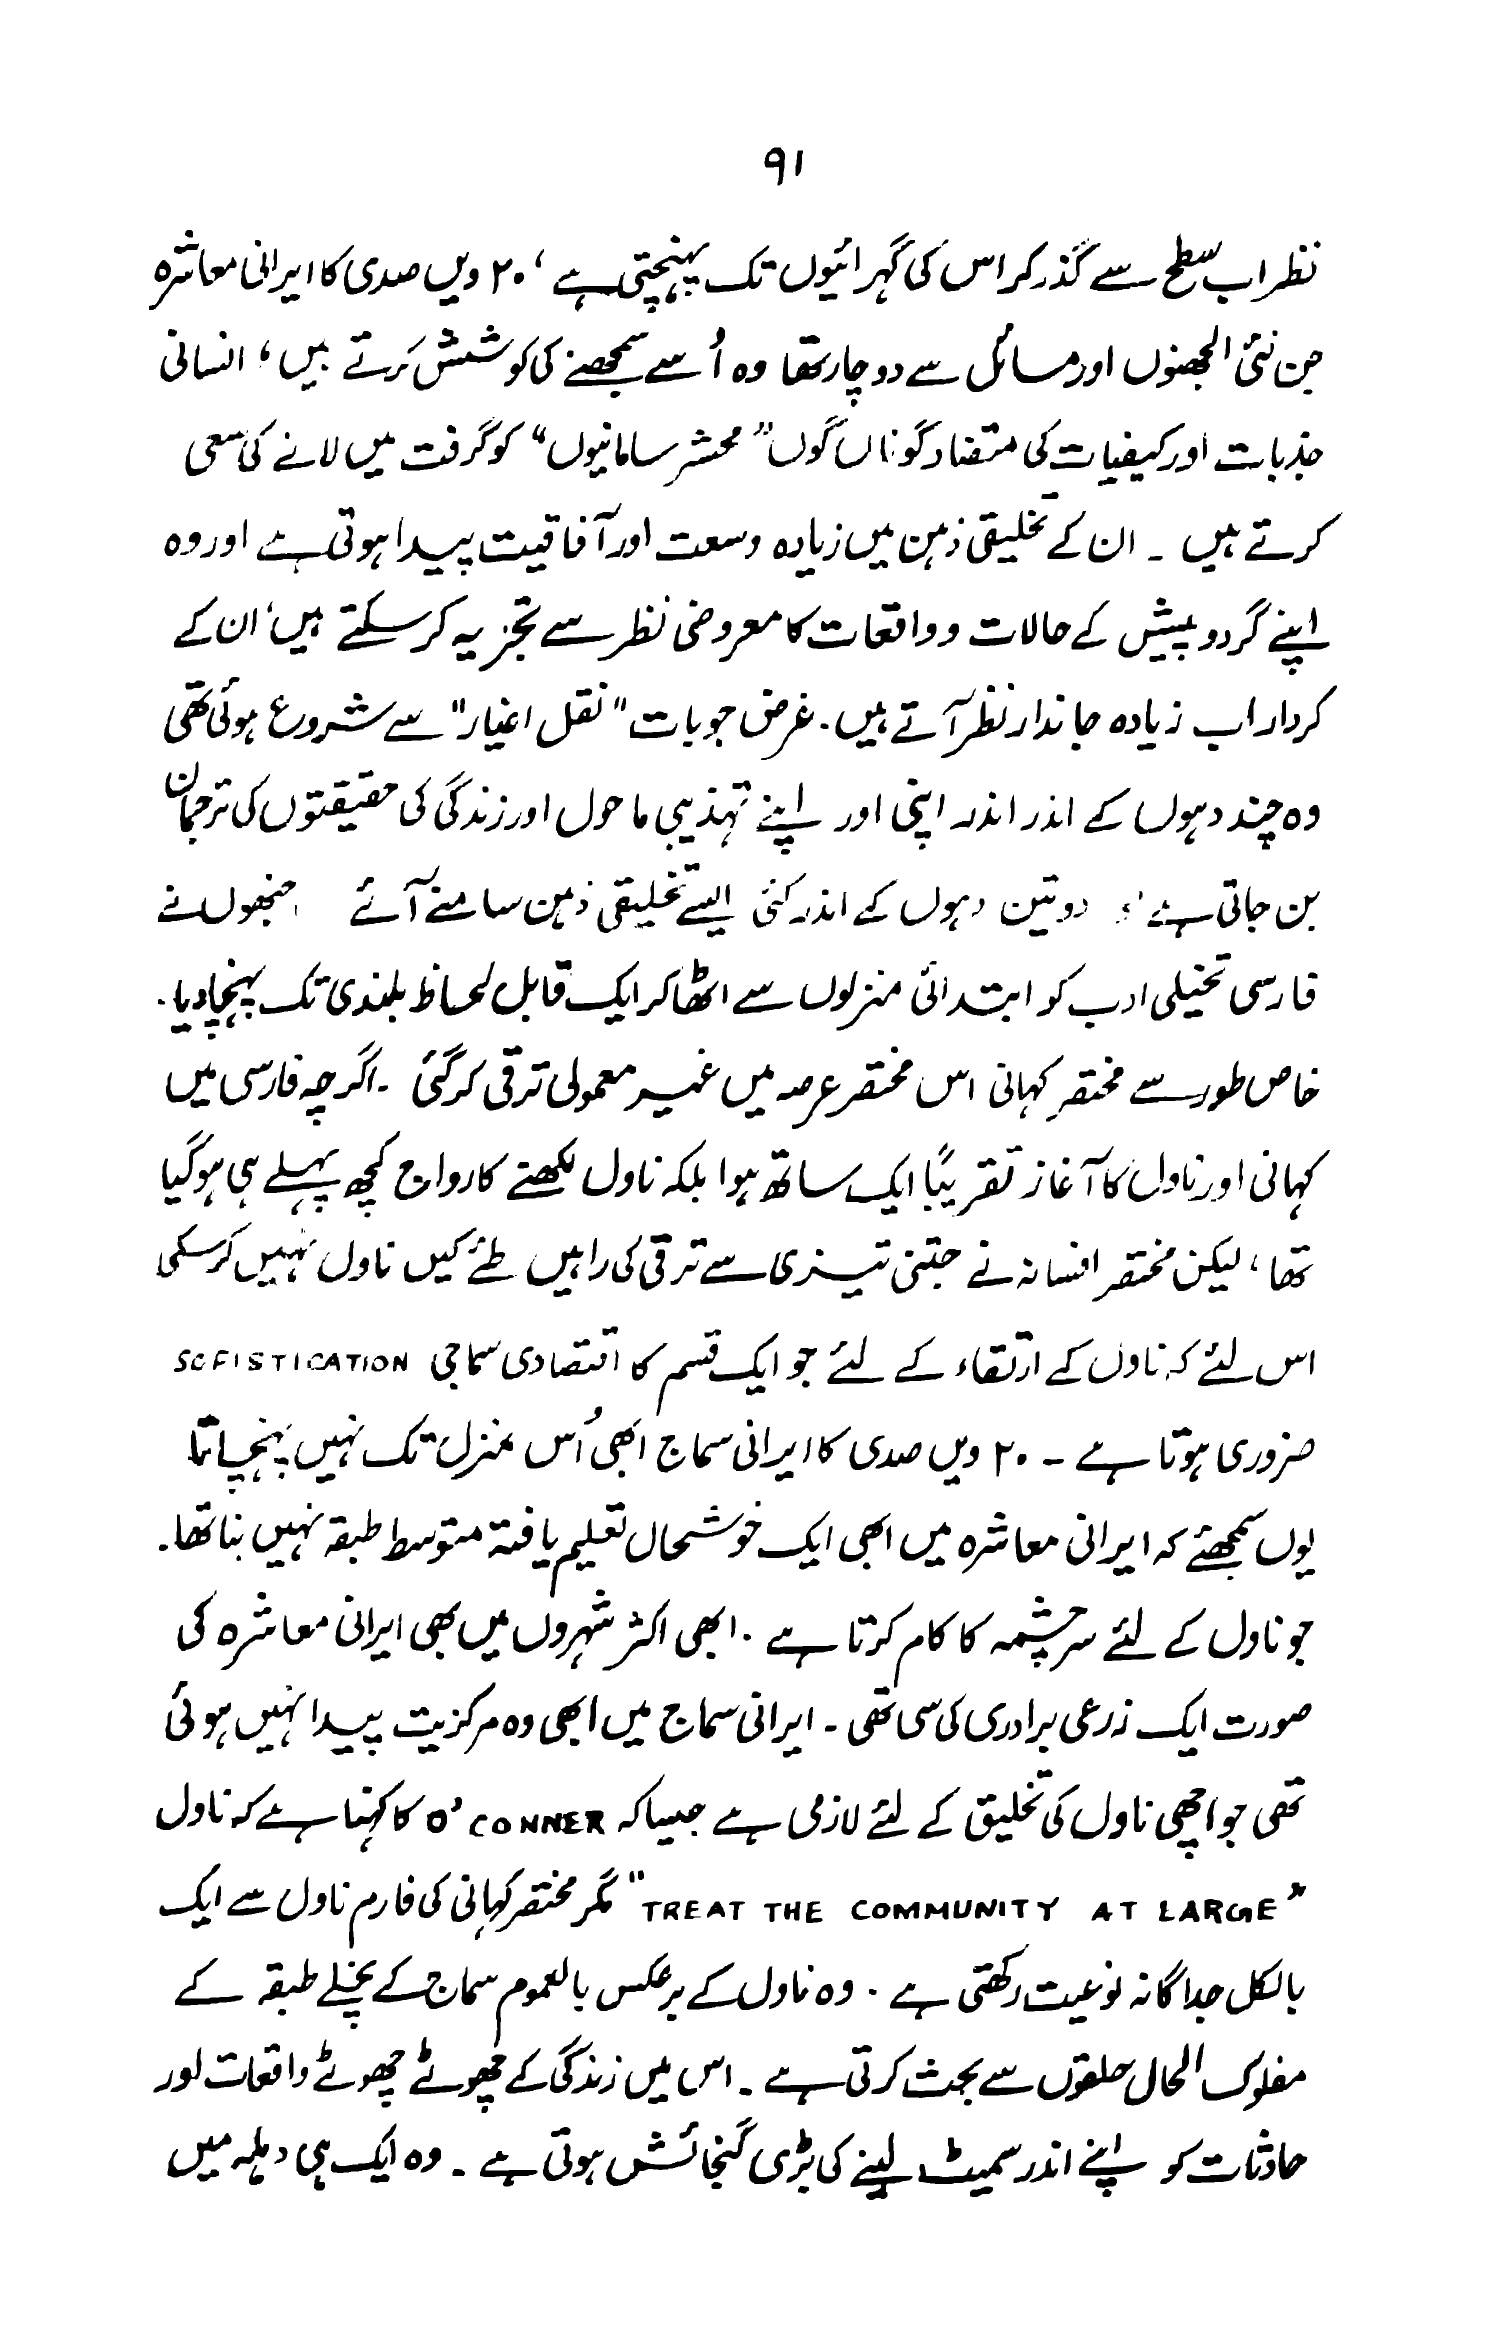 ۹۱
نظر اب سطح سے گذر کر اس کی گہرائیوں تک پہنچتی ہے ، ۲۰ ویں صدی کا ایرانی معاشرہ
جن نئی الجھنوں اور مسائل سے دو چار تھا وہ اُسے سمجھنے کی کوشش کرتے ہیں ، انسانی
جذبات اور کیفیات کی متضاد گوناں گوں ”محشر سامانیوں“ کو گرفت میں لانے کی سعی
کرتے ہیں ۔ ان کے تخلیقی ذہن میں زیادہ وسعت اور آفاقیت پیدا ہوتی ہے اور وہ
اپنے گرد و پیش کے حالات و واقعات کا معروضی نظر سے تجزیہ کر سکتے ہیں ، ان کے
کردار اب زیادہ جاندار نظر آتے ہیں ۔ غرض جو بات "نقل اغیار" سے شروع ہوئی تھی
وہ چند دہوں کے اندر اندر اپنی اور اپنے تہذیبی ماحول اور زندگی کی حقیقتوں کی ترجمان
بن جاتی ہے ، دو تین دہوں کے اندر کئی ایسے تخلیقی ذہن سامنے آئے جنھوں نے
فارسی تخیلی ادب کو ابتدائی منزلوں سے اٹھا کر ایک قابل لحاظ بلندی تک پہنچا دیا ۔
خاص طور سے مختصر کہانی اس مختصر عرصہ میں غیر معمولی ترقی کر گئی ۔ اگرچہ فارسی میں
کہانی اور ناول کا آغاز تقریباً ایک ساتھ ہوا بلکہ ناول لکھنے کا رواج کچھ پہلے ہی ہو گیا
تھا ، لیکن مختصر افسانہ نے جتنی تیزی سے ترقی کی راہیں طئے کیں ناول نہیں کر سکی
اس لئے کہ ناول کے ارتقاء کے لئے جو ایک قسم کا اقتصادی سماجی SOFISTICATION
ضروری ہوتا ہے ۔ ۲۰ ویں صدی کا ایرانی سماج ابھی اُس منزل تک نہیں پہنچ پایا تھا
یوں سمجھئے کہ ایرانی معاشرہ میں ابھی ایک خوشحال تعلیم یافتہ متوسط طبقہ نہیں بنا تھا ۔
جو ناول کے لئے سرچشمہ کا کام کرتا ہے ۔ ابھی اکثر شہروں میں بھی ایرانی معاشرہ کی
صورت ایک زرعی برادری کی سی تھی ۔ ایرانی سماج میں ابھی وہ مرکزیت پیدا نہیں ہوئی
تھی جو اچھی ناول کی تخلیق کے لئے لازمی ہے جیسا کہ O'CONNER کا کہنا ہے کہ ناول
"TREAT THE COMMUNITY AT LARGE" مگر مختصر کہانی کی فارم ناول سے ایک
بالکل جداگانہ نوعیت رکھتی ہے ۔ وہ ناول کے برعکس بالعموم سماج کے نچلے طبقہ کے
مفلوک الحال حلقوں سے بحث کرتی ہے ۔ اس میں زندگی کے چھوٹے چھوٹے واقعات اور
حادثات کو اپنے اندر سمیٹ لینے کی بڑی گنجائش ہوتی ہے ۔ وہ ایک ہی دہلہ میں